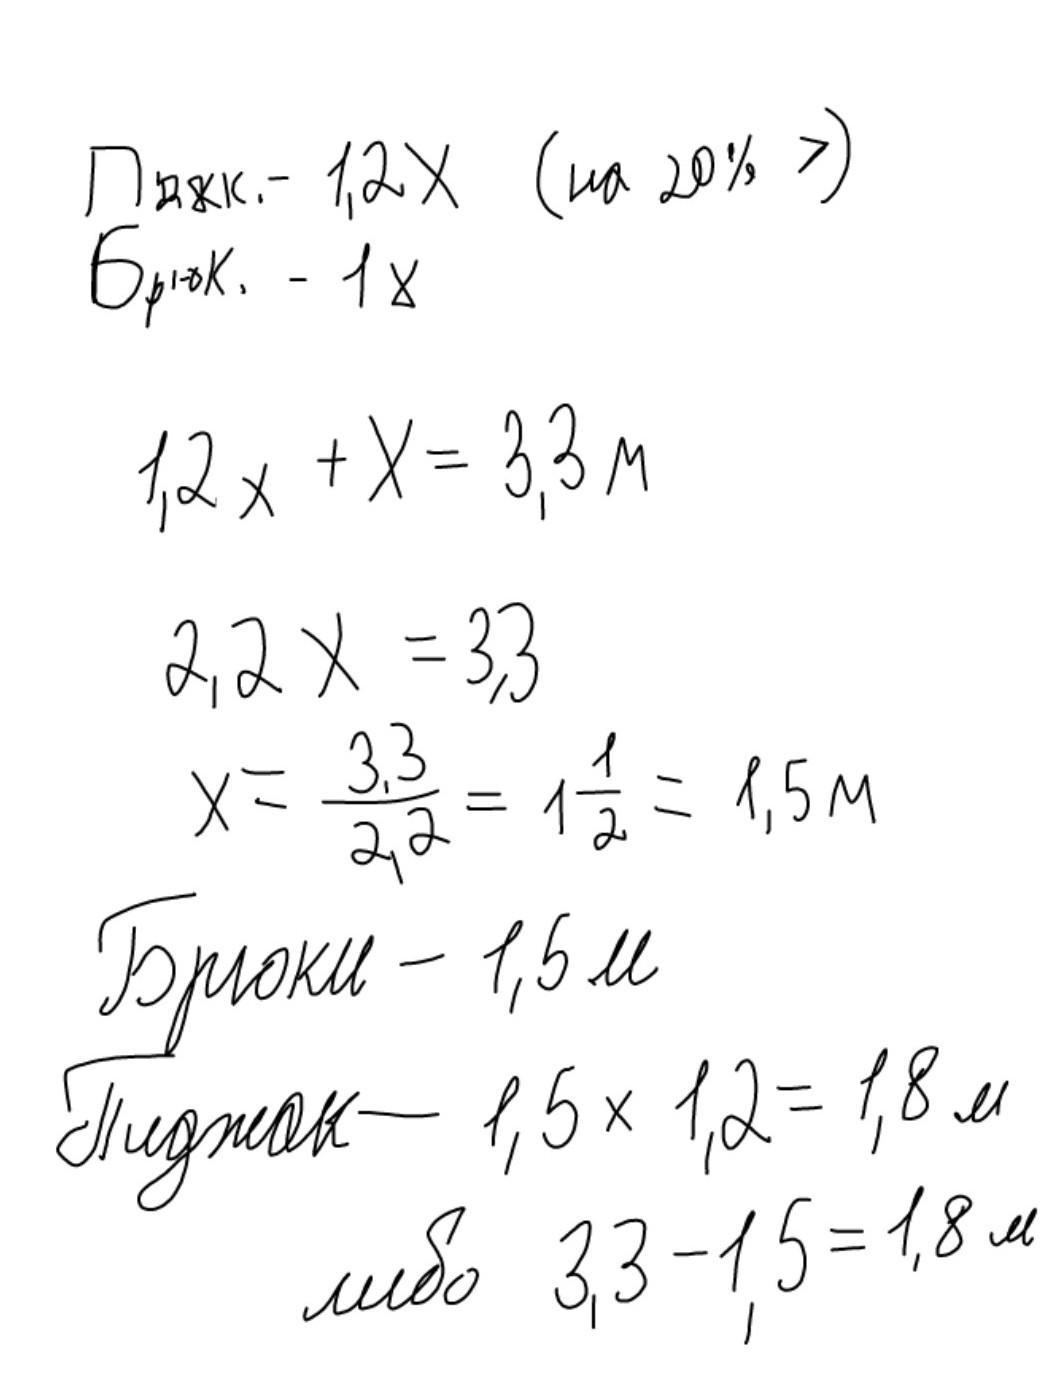 Пджк. - 1,2X (на 20% >)
Брюк. - 1x
1,2x + X = 3,3 м
2,2X = 3,3
x = 3,3/2,2 = 1 1/2 = 1,5 м
Брюки - 1,5 м
Пиджак - 1,5 x 1,2 = 1,8 м
либо 3,3 - 1,5 = 1,8 м